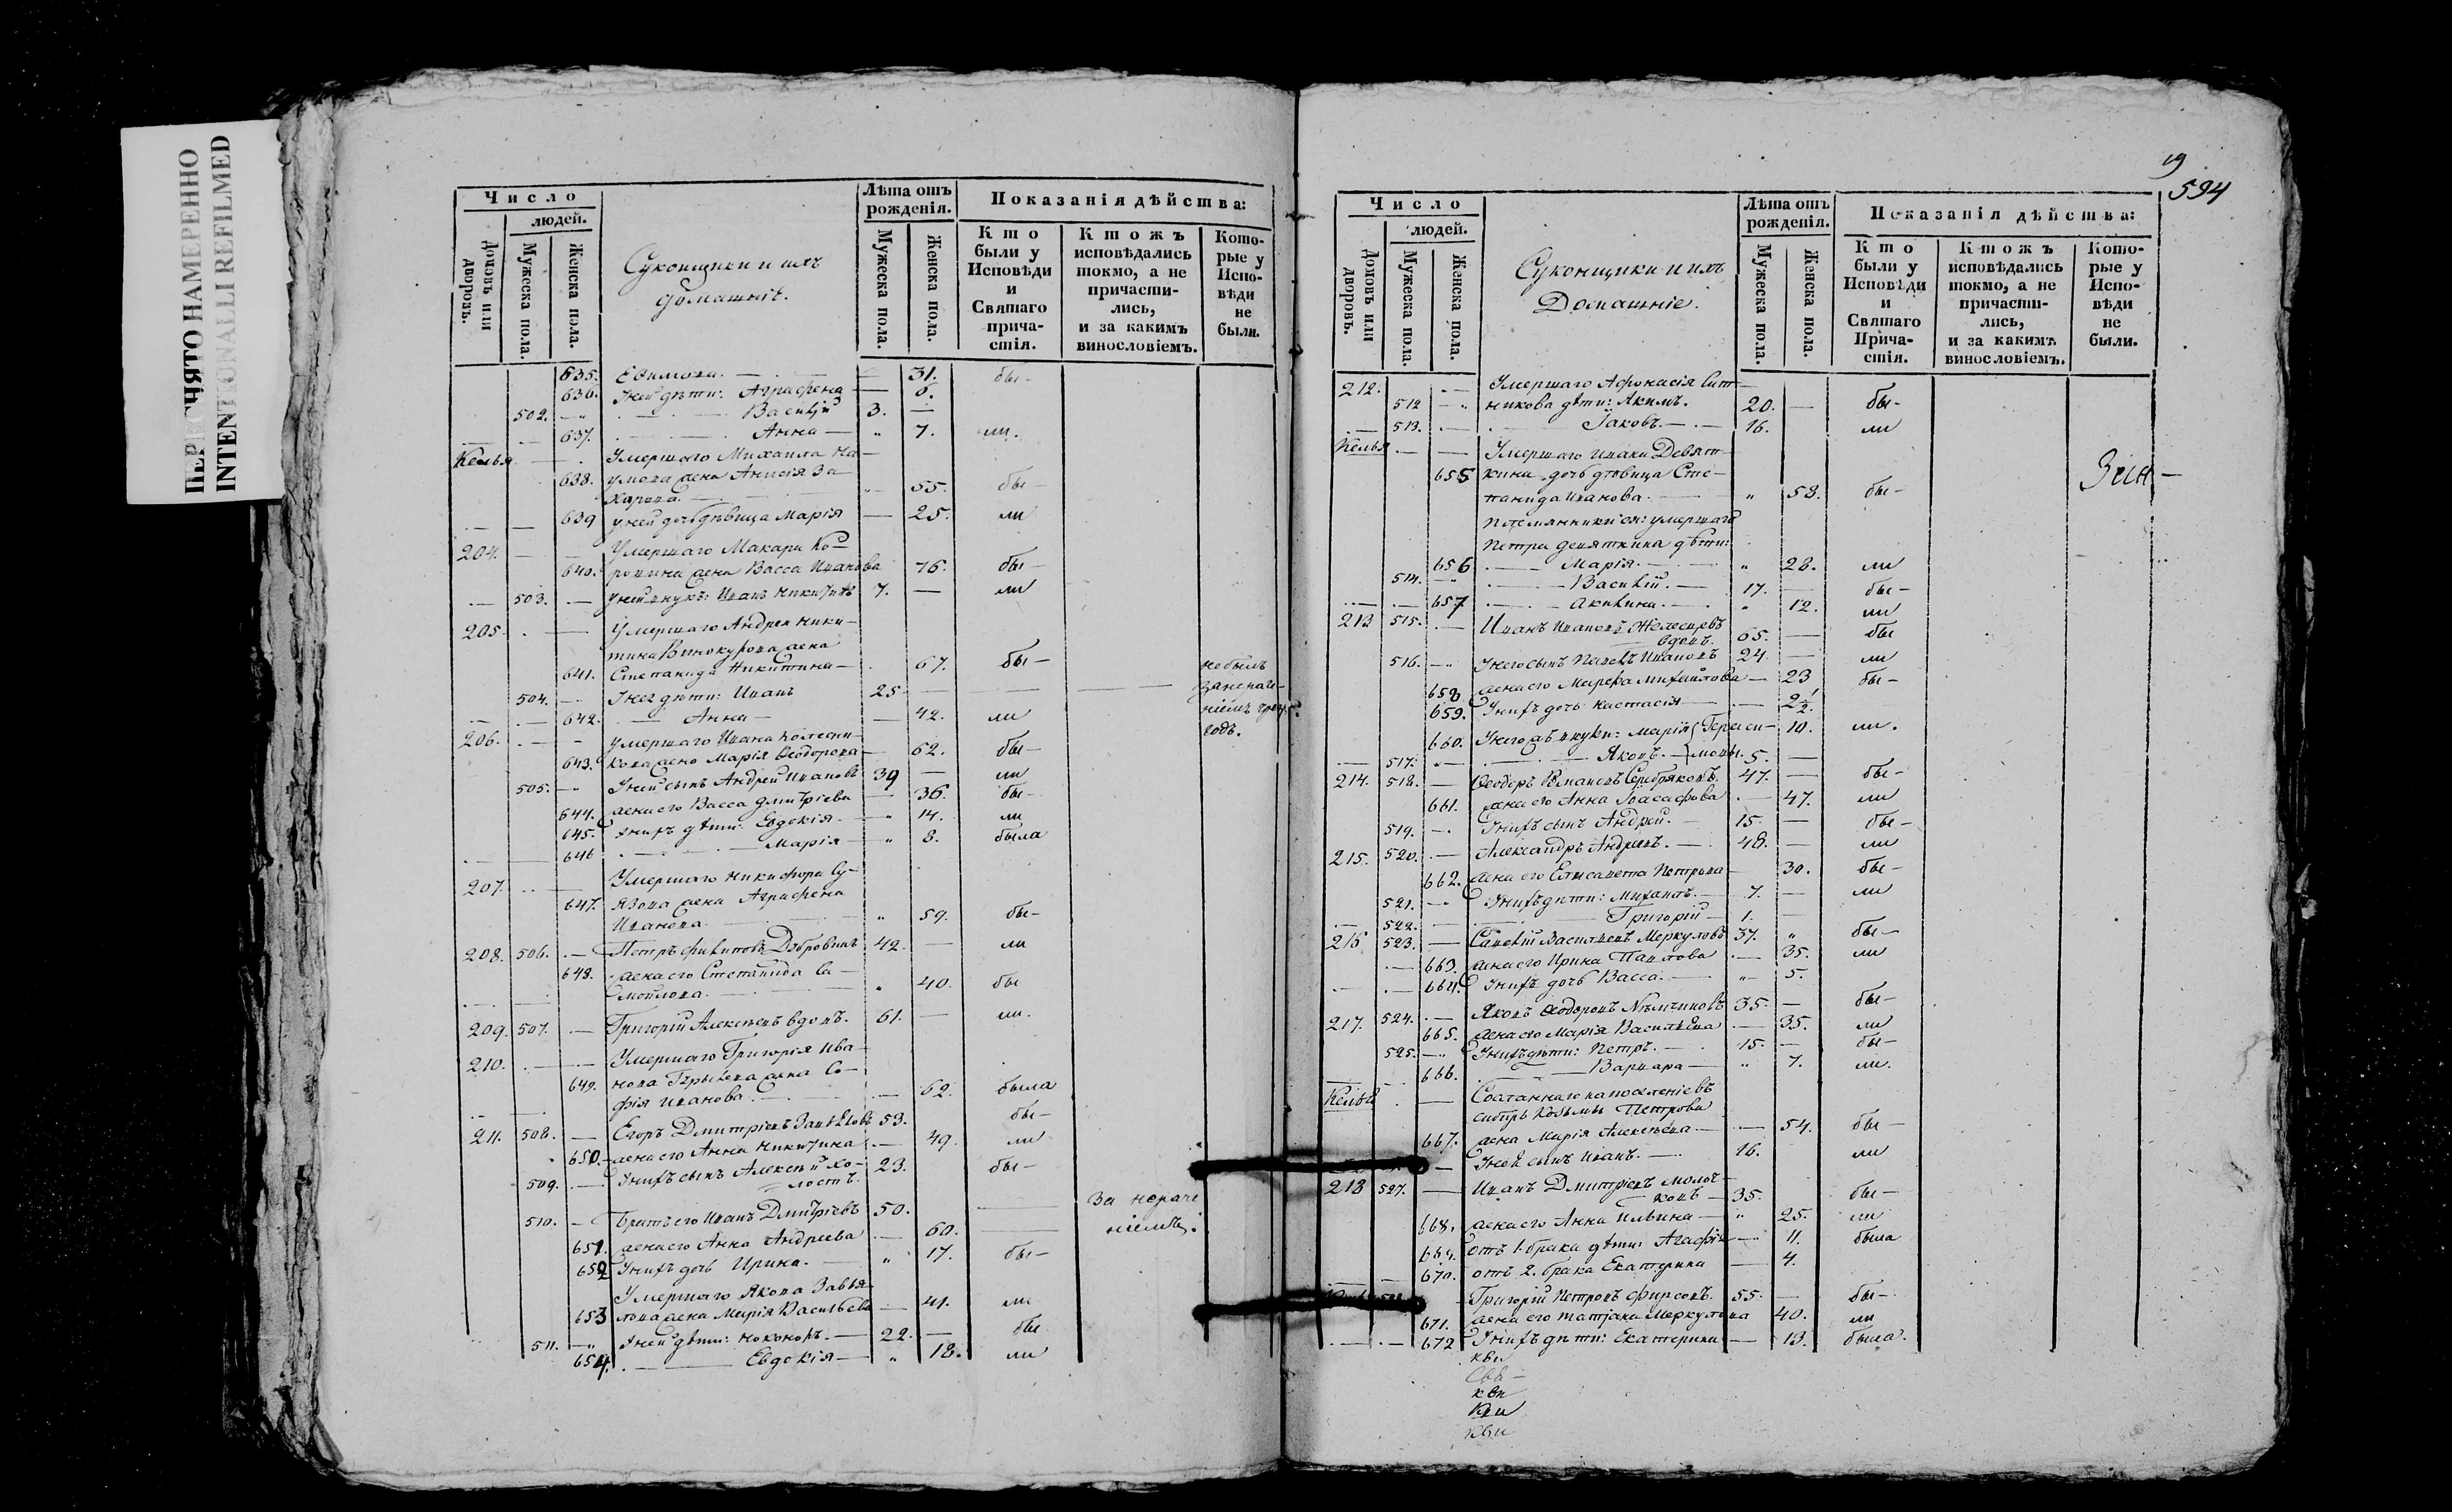 ПЕРЕСНЯТО НАМЕРЕННО
INTENTIONALLI REFILMED
Число
людей.
Домовъ или дворовъ.
Мужеска пола.
Женска пола.
Суконщики и ихъ
домашніе.
Лѣта отъ рожденія.
Мужеска пола.
Женска пола.
Показанія дѣйства:
Кто были у Исповѣди и Святаго причастія.
Ктожъ исповѣдались токмо, а не причастились, и за какимъ винословіемъ.
Которые у Исповѣди не были.
635. Евимова. 31. бы-
636. У ней дѣти: Аграфена 8.
502. Василій 3.
637. Анна 7. ли.
Келья Умершаго Михаила На-
638. умова жена Анисія За-
харова. 55. бы-
639 у ней дочь дѣвица Марія 25. ли
204. Умершаго Макара Ко-
640. жена Васса Иванова 76. бы-
503. У ней внукъ: Иванъ Никитинъ 7. ли
205. Умершаго Андрея Ники-
тина Винокурова жена
641. Степанида Никитина 67. бы-
504. У нея дѣти: Иванъ 25 не былъ
642. Анна 42. ли
годъ.
206. Умершаго Ивана Колесни-
643. кова жена Марія Ѳеодорова 62. бы-
505. У ней сынъ Андрей Ивановъ 39 ли
644. жена его Васса Дмитріева 36. бы-
645. У нихъ дѣти: Евдокія 14. ли
646 Марія 8. была
207. Умершаго Никифора Су-
647. язова жена Аграфена
Иванова. 59. бы-
208. 506. Петръ Филиповъ Добровинъ 42. ли
648. жена его Степанида Са-
мойлова. 40. бы
209. 507. Григорій Алексѣевъ вдовъ. 61. ли.
210. Умершаго Григорія Ива-
649. нова жена Со-
фія Иванова. 62. была
211. 508. Егоръ Дмитріевъ Завьяловъ 53. бы-
650. жена его Анна Никитина 49. ли
509. У нихъ сынъ Алексѣй хо-
лостъ. 23. бы-
510. Братъ его Иванъ Дмитріевъ 50. За нераче
651. жена его Анна Андреева 60. ніемъ.
652 У нихъ дочь Ирина. 17. бы-
Умершаго Якова Завья-
653 лова жена Марія Васильева 41. ли
511. У ней дѣти: Никоноръ. 22. бы
654. Евдокія 18. ли
19
594
Число
людей.
Домовъ или дворовъ.
Мужеска пола.
Женска пола.
Суконщики и ихъ
Домашніе.
Лѣта отъ рожденія.
Мужеска пола.
Женска пола.
Показанія дѣйства:
Кто были у Исповѣди и Святаго Причастія.
Ктожъ исповѣдались токмо, а не причастились, и за какимъ винословіемъ.
Которые у Исповѣди не были.
212. Умершаго Афонасія Сит-
512 никова дѣти: Акимъ. 20. бы-
513. Іаковъ. 16. ли
Келья Умершаго Ивана Девят-
655 кина дочь дѣвица Сте-
панида Иванова. 58. бы-
племянники ея: умершаго
Петра Девяткина дѣти:
656 Марія. 28. ли
514. Василій. 17. бы-
657 Акилина. 12. ли
213 515. Иванъ Ивановъ
вдовъ. 65. бы
516. У него сынъ Павелъ Ивановъ 24. ли
658 жена его Марфа Михайлова 23 бы-
659. У нихъ дочь Настасія 2½.
660. У него жъ внуки: Марія Гераси- 10. ли.
517. Яковъ. мовы. 5.
214. 518. Ѳеодоръ Романовъ Серебряковъ. 47. бы-
661. жена его Анна Іоасафова 47. ли
519. У нихъ сынъ Андрей. 15. бы-
215. 520. Александръ Андреевъ. 48. ли
662. жена его Елисавета Петрова 30. бы-
521. У нихъ дѣти: Михаилъ. 7. ли
522. Григорій 1.
216 523. Савелій Васильевъ Меркуловъ 37. бы-
663. жена его Ирина Павлова 35. ли
664. У нихъ дочь Васса. 5.
217. 524. Яковъ Ѳеодоровъ Нѣмчиновъ 35. бы-
665. жена его Марія Васильева 35. ли
525. У нихъ дѣти: Петръ. 15. бы-
666. Варвара 7. ли.
Келья Сосланнаго на поселеніе въ
Сибирь Козьмы Петрова
667. жена Марія Алексѣева 54. бы-
У ней сынъ Иванъ. 16. ли
218 527. Иванъ Дмитріевъ Молот-
ковъ 35. бы-
668. жена его Анна Ильина 25. ли
669. отъ 1. брака дѣти: Агафія 11. была
670. отъ 2. брака Екатерина 4.
Григорій Петровъ Фирсовъ. 55. бы-
671. жена его Татіана Меркулова 40. ли
672 У нихъ дѣти: Екатерина 13. была.